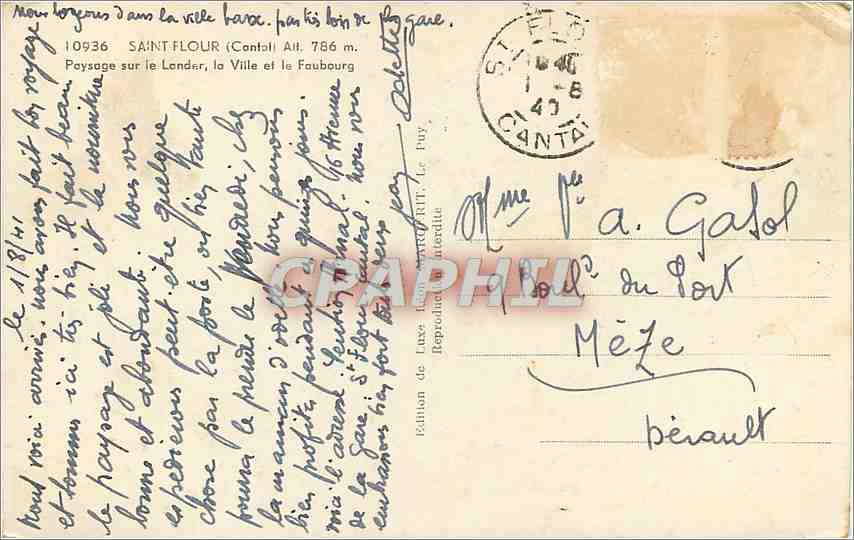 nous logeons dans la ville basse. pas très loin de la gare.
10936 SAINT-FLOUR (Cantal) Alt. 786 m.
Paysage sur le Lander, la Ville et le Faubourg
le 1/8/41
Nous voici arrivés. nous avons fait bon voyage
et sommes ici très bien. Il fait beau
le paysage est joli et la nourriture
bonne et abondante. nous vous
expedierons peut être quelque
chose par la poste, ou bien
pourra le prendre le Vendredi, chez
la maman d'Odette. Nous pensons
bien profiter pendant quinze jours.
voici l'adresse. Pension 46 Avenue
de la gare St Flour Cantal. Nous vous
embrassons bien fort tous deux
Jean Odette
Edition de Luxe MARGERIT, Le Puy
Reproduction Interdite
ST FLO
40
CANTA
CPARAMA
CPAPHIL
Mme Vve A. Gafol
9 Boul.d du Port
Mèze
Hérault